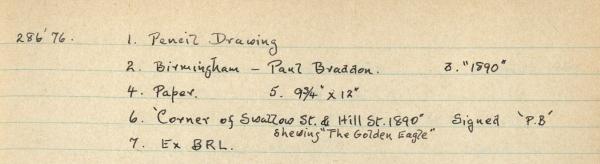 286'76. 1. Pencil Drawing
2. Birmingham – Paul Braddon. 3. "1890"
4. Paper. 5. 9¾" x 12"
6. 'Corner of Swallow St. & Hill St. 1890" Signed 'P.B'
Shewing "The Golden Eagle"
7. Ex BRL.